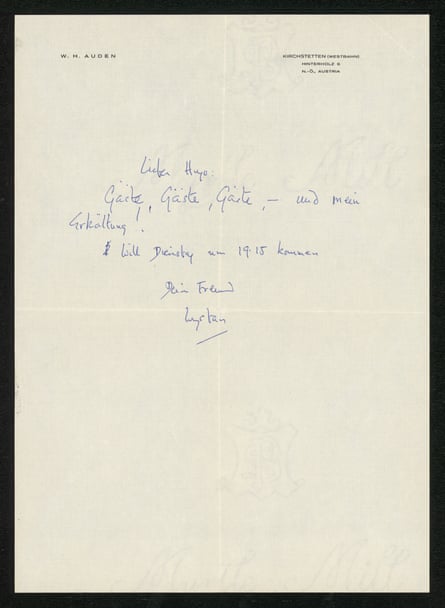 W. H. AUDEN
KIRCHSTETTEN (WESTBAHN)
HINTERHOLZ 6
N.-Ö., AUSTRIA
Lieber Hugo:
Gäste, Gäste, Gäste, – und mein
Erkältung!
Will Dienstag um 19.15 kommen
Dein Freund
Wystan